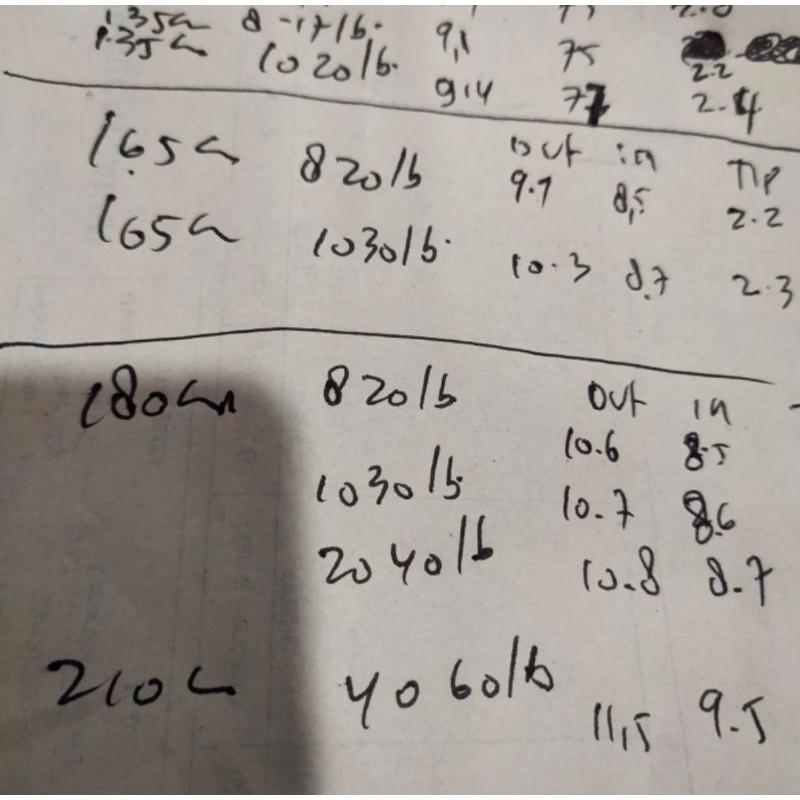 1.35cm 8-17lb. 9,1 75
1.35cm 1020lb. 9.4 77 2.2
2.4
165cm 820lb out in TIP
9.7 8,5 2.2
165cm 1030lb. 10.3 8.7 2.3
180cm 820lb out in
10.6 8.5
1030lb 10.7 8.6
2040lb 10.8 8.7
210cm 4060lb 11,5 9.5